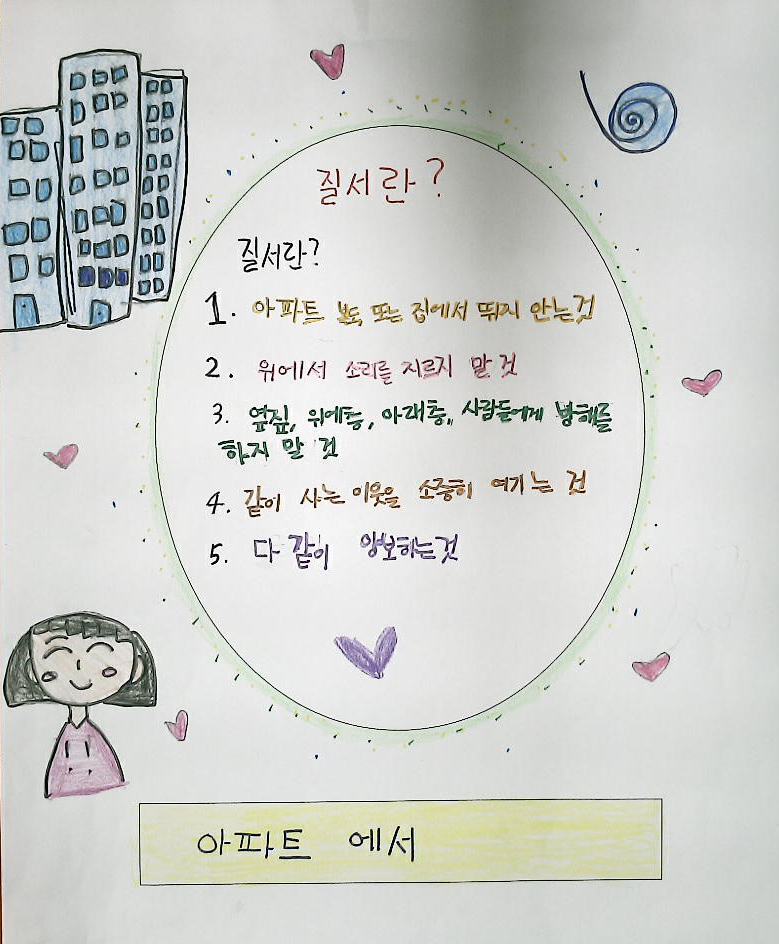 질서란?
질서란?
1. 아파트 복도 또는 집에서 뛰지 안는것
2. 위에서 소리를 지르지 말 것
3. 옆집, 위에층, 아래층, 사람들에게 방해를
하지 말 것
4. 같이 사는 이웃을 소중히 여기는 것
5. 다 같이 양보하는것
아파트 에서